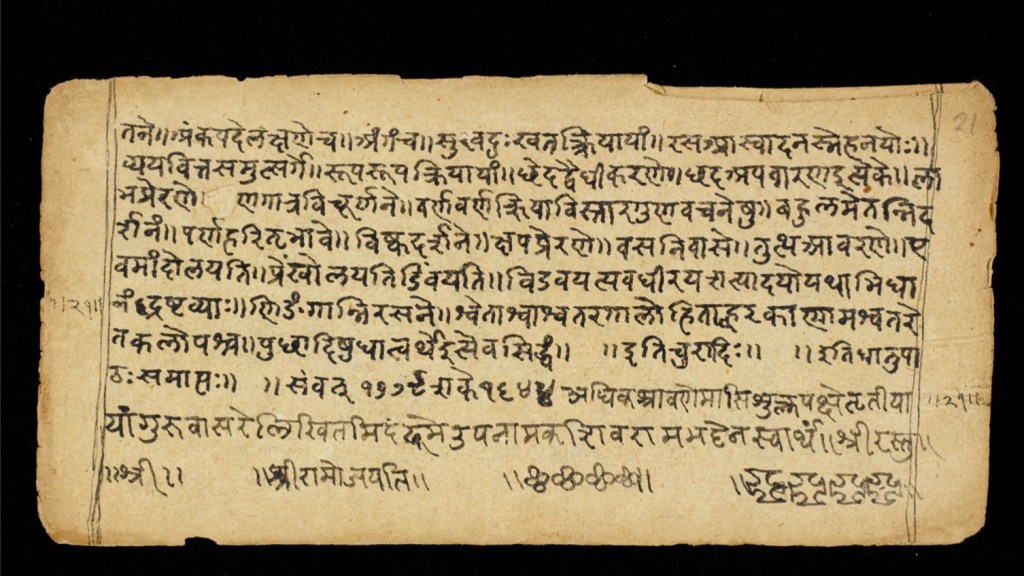 21
तने॥ अंक पदे लक्षणे च॥ अंगं च॥ सुखदुःखतत्क्रियायां॥ रस आस्वादनस्नेहनयोः॥
व्ययवित्तसमुत्सर्गे॥ रूपरूपक्रियायां॥ छेदद्वैधीकरणे॥ छद अपवारणइत्येके॥ ला
भप्रेरणे व्रणगात्रविचूर्णने॥ वर्णवर्णक्रियाविस्तारगुणवचनेषु॥ बहुलमेतन्निद
र्शनं॥ पर्णहरितभावे॥ विष्कदर्शने॥ क्षपप्रेरणे॥ वसनिवासे॥ तुत्थआवरणे॥ ए
वमांदोलयति॥ प्रेंखोलयति विडंवयति॥ अवधीरयत्यादयो यथाभिधा
नं द्रष्टव्याः॥ णिङंगान्निरसने॥ श्वेताश्वाश्वतरगालोडिताह्वरकाणामश्वतरे
तकलोपश्च॥ पुछादिषुधात्वर्थेइत्येवसिद्धं॥ ॥इतिचुरादिः॥ ॥इतिधातुपा
ठः समाप्तः॥ ॥संवत् १७७९ शके १६४४ अधिकश्रावणेमासिशुक्लपक्षेतृतीया
यां गुरुवासरे लिखितमिदं उपनामक शिवरामभट्टेन स्वार्थं॥ श्रीरस्तु॥
॥श्री॥ ॥श्रीरामोजयति॥ ॥छ॥छ॥छ॥छ॥
॥२१॥
॥२१॥